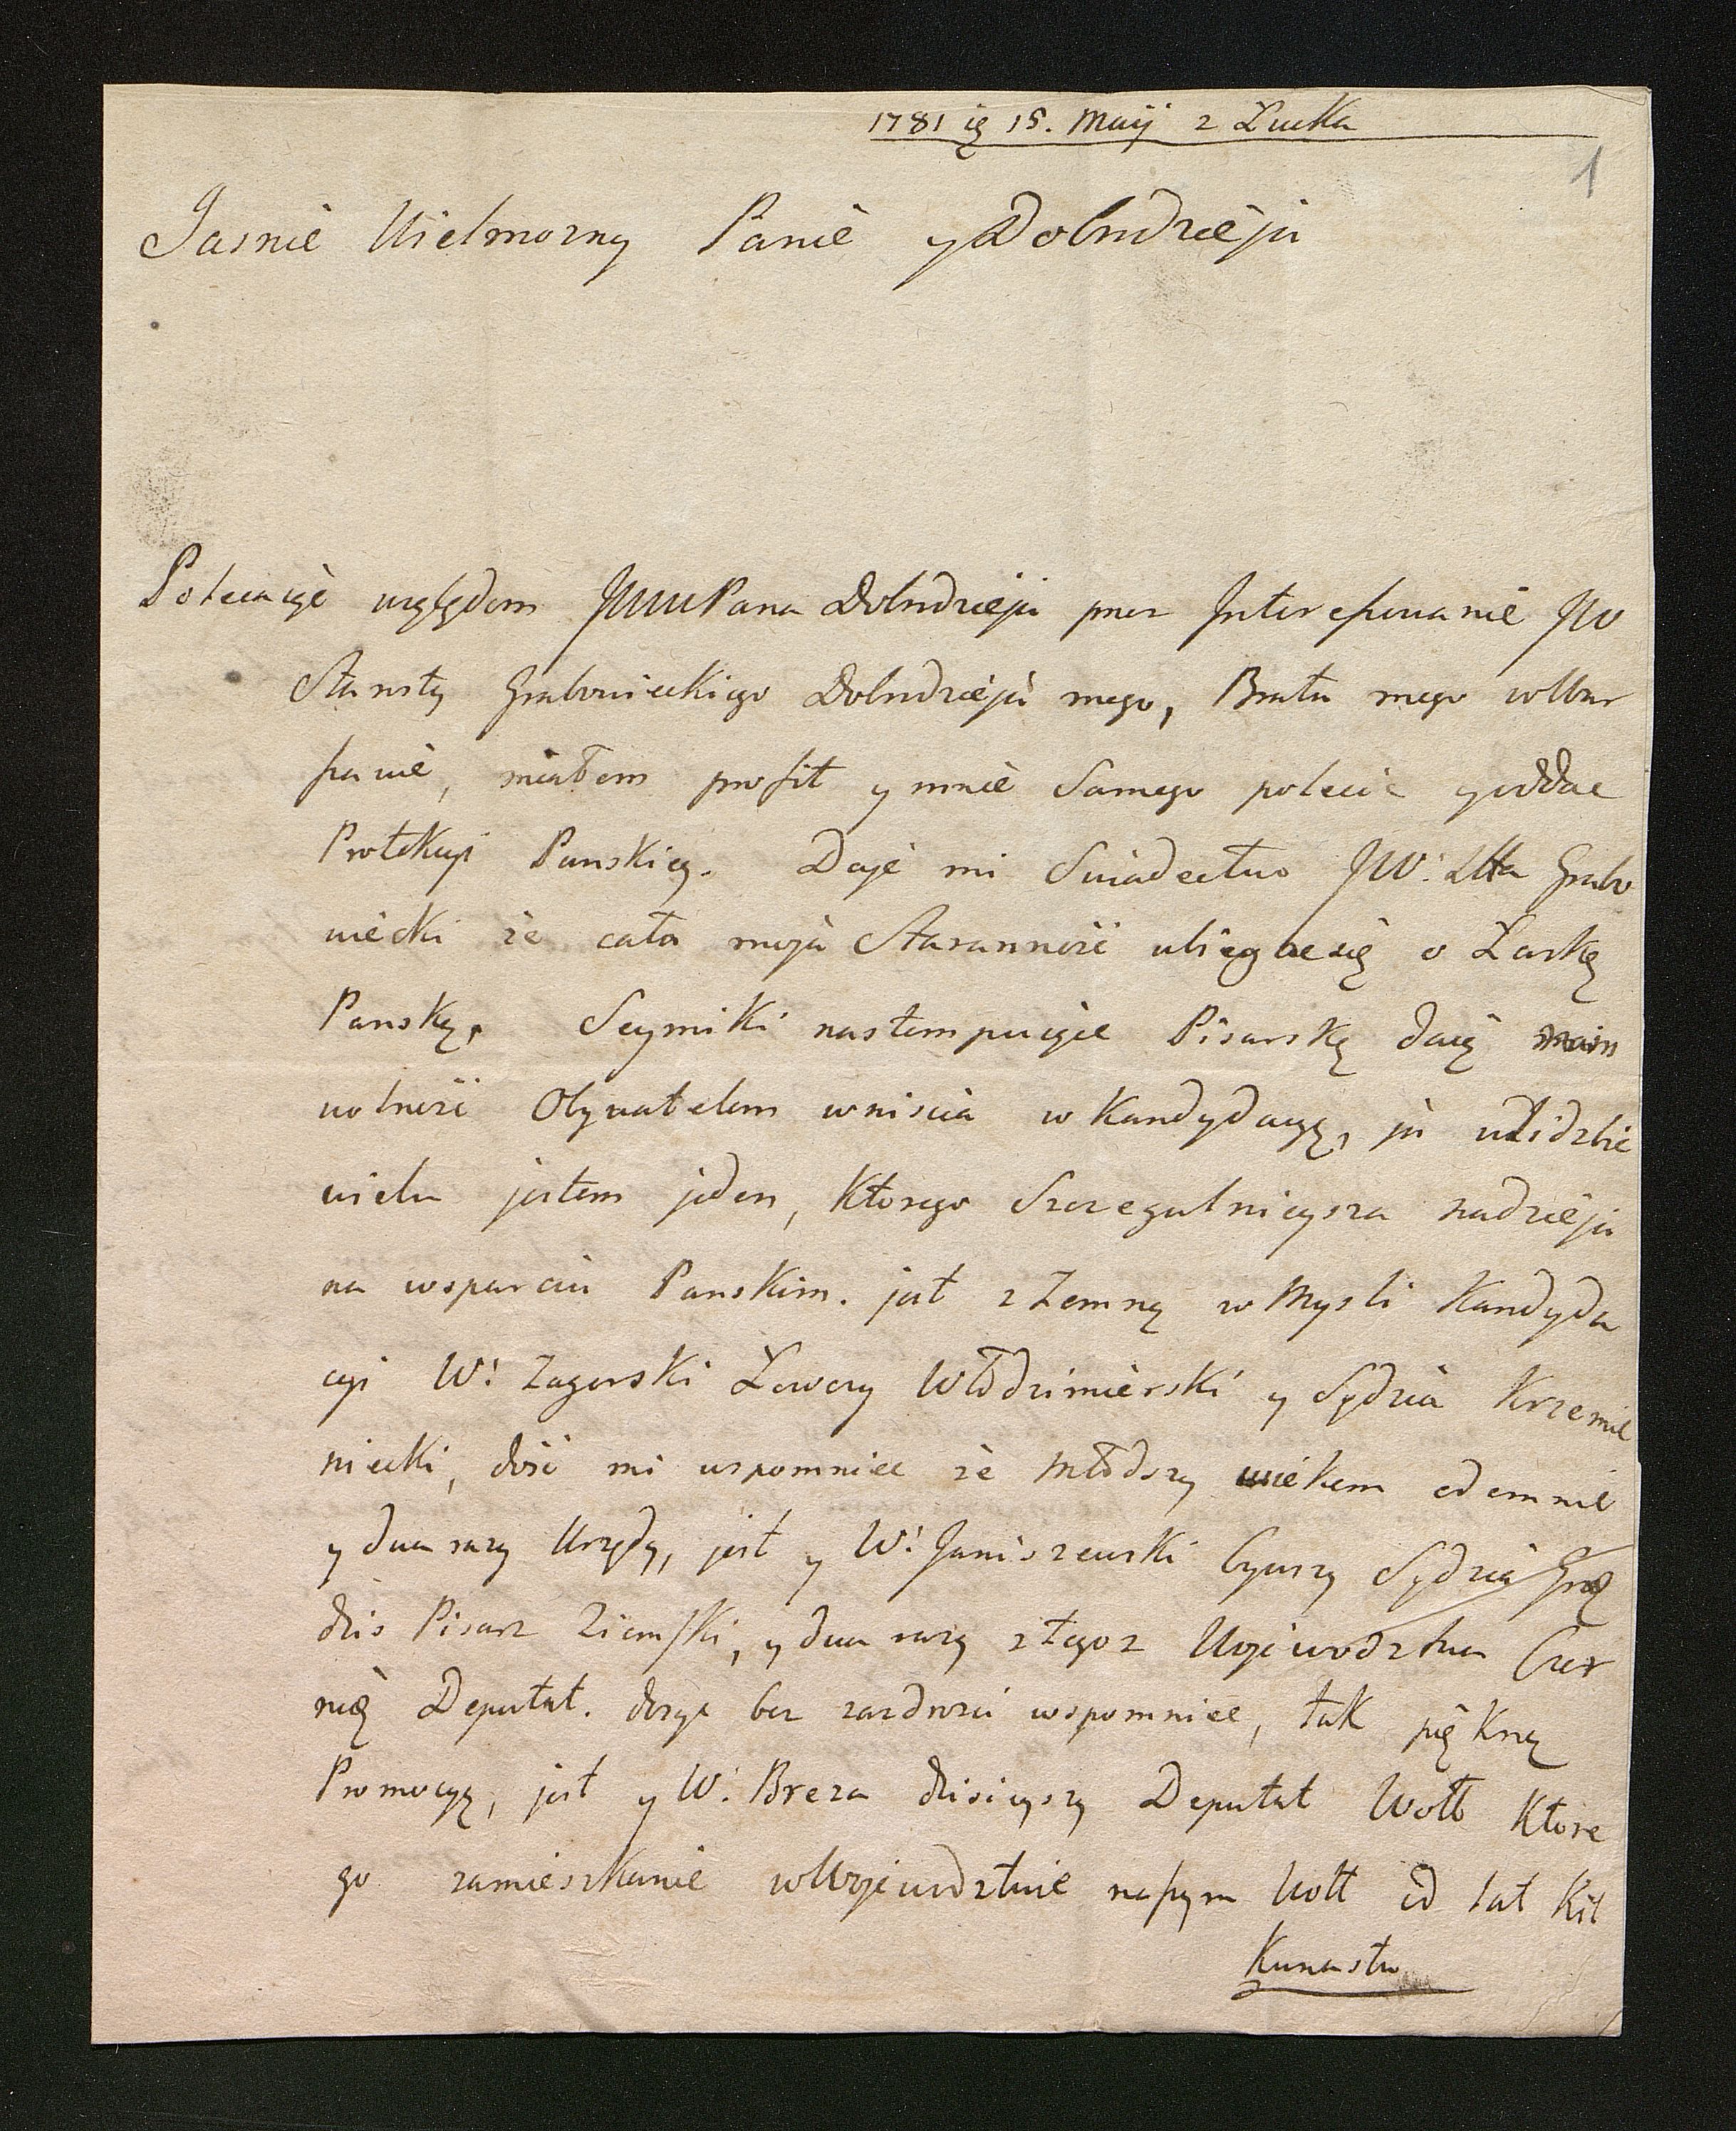 1781 ię 15. Maij z Łucka
1
Jasnie Wielmozny Panie y Dobrodzieju
Polecaiąc względom JWWPana Dobrodzieja przez Interessowanie JW
Starosty Grabowieckiego Dobrodzieja mego, Brata mego
miałem profit y mnie Samego polecic y oddac
Protekcyi Panskiey. Daie mi Swiadectwo JW: Stta Grabo
wiecki że cała moja Starannosć ubiegac się o Łaskę
Panską. Seymiki nastempuiące Pisarską daią
wolność Obywatelom wniscia w Kandydacyą, ja w Liczbie
wielu jestem jeden, Ktorego Szczegulnieysza nadzieja
na wsparciu Panskim. jest zemną w Mysli Kandyda
cyi W: Zagorski Łowczy Włodzimierski y Sędzia Krzemie
niecki, dość mi wspomniec że Młodszy wiekem odemnie
y dwa razy Urzędy, jest y W: Janiszewski bywszy Sędzia
dzis Pisarz Ziemski, y dwa razy z tegoz Wojewodztwa Czer
nię Deputat. dosyc bez zazdrosci wspomniec, tak piękną
Promocyą, jest y W: Breza dzisieyszy Deputat Wołł Ktore
go zamieszkanie w Wojewodztwie naszym Wołł od lat Kil
Kunastu